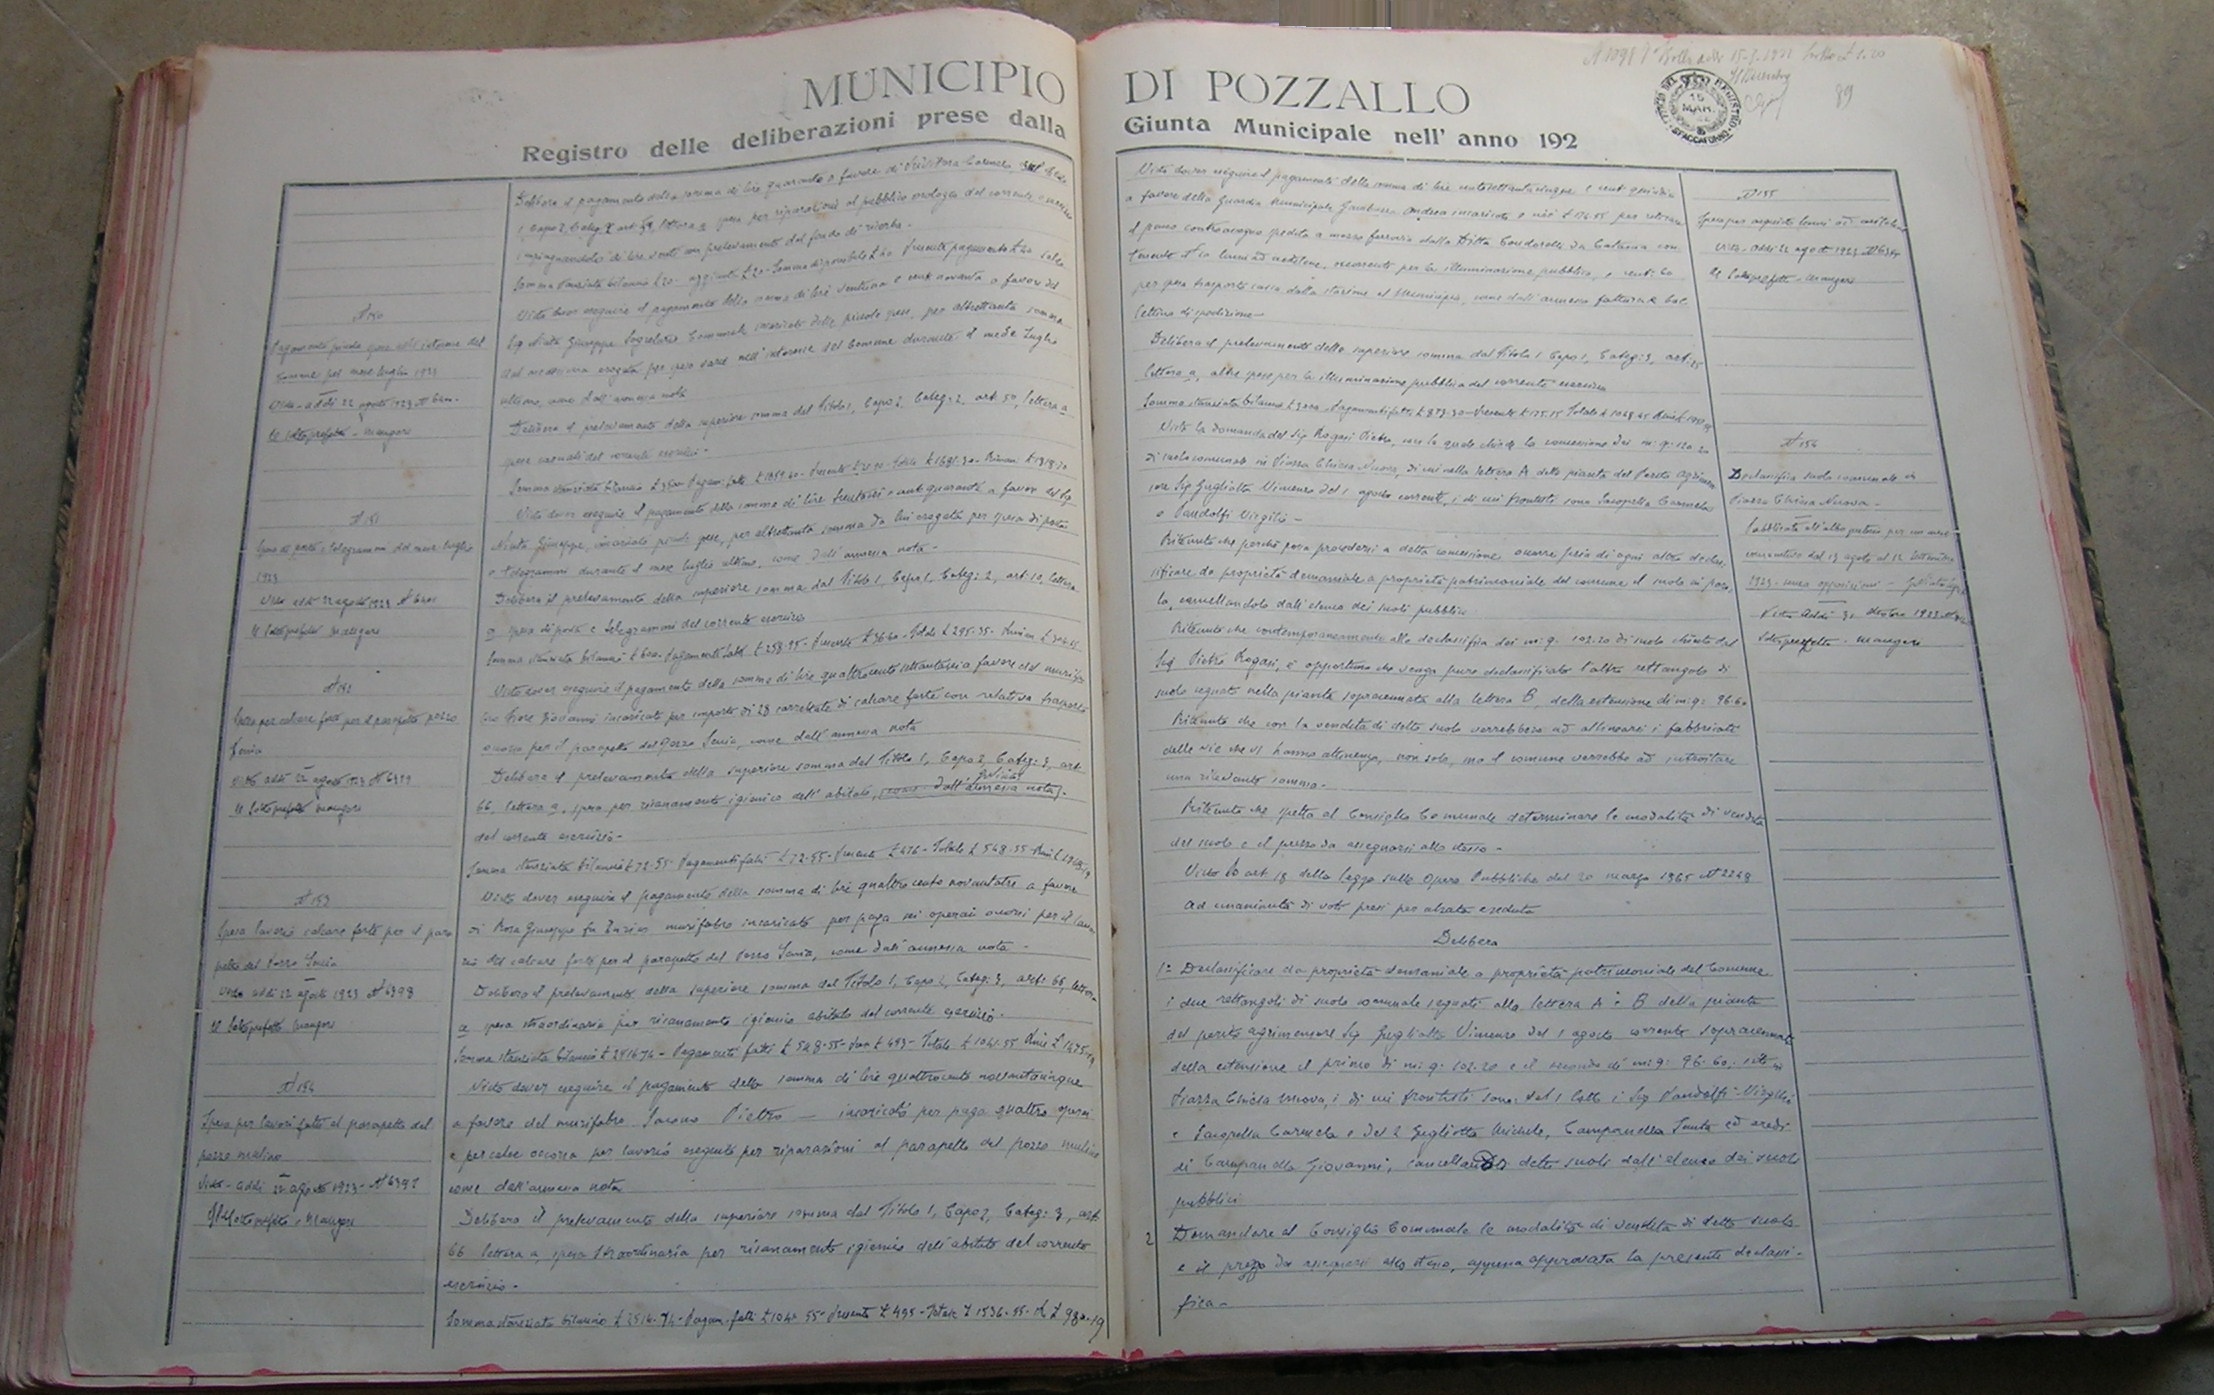 MUNICIPIO DI POZZALLO
Registro delle deliberazioni prese dalla Giunta Municipale nell' anno 192
89
Delibera il pagamento della somma di lire quaranta a favore di
spesa per riparazioni al pubblico orologio del corrente esercizio
impinguandolo di lire venti con prelevamento dal fondo di riserba.
Somma stanziata bilancio £ 20 - aggiunte £ 20 - Somma disponibile £ 40 Presente pagamento £ 40
N 150
Pagamento piccole spese nell'interesse del
comune pel mese luglio 1923
Visto - addì 22 agosto 1923 N
Il Sottoprefetto - Mangeri
Visto dover eseguire il pagamento della somma di lire ventuna e cent novanta a favore del
Sig Giuseppe Segretario Comunale incaricato delle piccole spese, per altrettanta somma
dal medesimo erogata per spese varie nell'interesse del Comune durante il mese Luglio
ultimo, come dall'annessa nota
Delibera il prelevamento della superiore somma dal Titolo 1, Capo 2, Categ: 2, art. 50, lettera a
spese casuali del corrente esercizio -
N 151
Spese di posta e telegrammi del mese luglio
1923
Visto addì 22 agosto 1923 N 6401
Il Sottoprefetto Mangeri
Visto dover eseguire il pagamento della somma di lire trentasei e cent quaranta a favore del Sig
Giuseppe, incaricato piccole spese, per altrettanta somma da lui erogata per spesa di posta
e telegrammi durante il mese luglio ultimo, come dall'annessa nota -
Delibera il prelevamento della superiore somma dal Titolo 1, Capo 1, Categ: 2, art: 10, lettera
a spesa di posta e telegrammi del corrente esercizio
Somma stanziata bilancio £ 600 - Pagamenti fatti £ 258.95 - Presente £ 36.40 - Totale £ 295.35 -
N 152
Spesa per calcare forte per il parapetto pozzo
Senia
Visto addì 22 agosto 1923 N 6399
Il Sottoprefetto Mangeri
Visto dover eseguire il pagamento della somma di lire quattrocentosettantasei a favore del
Fiore Giovanni incaricato per importo di 28 carrettate di calcare forte con relativo trasporto
occorso per il parapetto del Pozzo Senia, come dall'annessa nota
Delibera il prelevamento della superiore somma dal Titolo 1, Capo 2, Categ: 3, art
66, lettera a, spesa per risanamento igienico dell'abitato, come dall'annessa nota.
del corrente esercizio -
Somma stanziata bilancio £ 72.55 - Pagamenti fatti £ 72.55 - Presente £ 476 - Totale £ 548.55
N 153
Spesa lavorio calcare forte per il para
petto del Pozzo Senia
Visto addì 22 agosto 1923 N 6398
Il Sottoprefetto Mangeri
Visto dover eseguire il pagamento della somma di lire quattrocento novantatre a favore
di Rosa Giuseppe fu Enrico murifabro incaricato per paga sei operai occorsi per il lavo
rio del calcare forte per il parapetto del Pozzo Senia, come dall'annessa nota -
Delibera il prelevamento della superiore somma dal Titolo 1, Capo 2, Categ: 3, art: 66, lettera
a spesa straordinaria per risanamento igienico abitato del corrente esercizio -
Somma stanziata bilancio £ 2516.74 - Pagamenti fatti £ 548.55 - £ 493 - Totale £ 1041.55 £ 1475.19
N 154
Spesa per lavori fatti al parapetto del
pozzo mulino
Visto - addì 22 agosto 1923 - N 6397
Il Sottoprefetto - Mangeri
Visto dover eseguire il pagamento della somma di lire quattrocento novantacinque
a favore del murifabro Iacono Pietro — incaricato per paga quattro operai
e per calce occorsa per lavorio eseguito per riparazioni al parapetto del pozzo mulino
come dall'annessa nota
Delibera il prelevamento della superiore somma dal Titolo 1, Capo 2, Categ: 3, art
66 lettera a, spesa straordinaria per risanamento igienico dell'abitato del corrente
esercizio -
Somma stanziata bilancio £ 2516.74 - Pagam. fatti £ 1041 55 - Presente £ 495 - Totale £ 1536.55 - £ 980.19
Visto dover eseguire il pagamento della somma di lire centosettantacinque e cent quindici
a favore della Guardia Municipale Andrea incaricato per ritirare
il pacco contrassegno spedito a mezzo ferrovia dalla Ditta da Catania con
tenente N lumi ad acetilene, occorrenti per la illuminazione pubblica, e cent: 60
per spesa trasporto cassa dalla stazione al Municipio, come dall'annessa fattura e bol
lettino di spedizione -
Delibera il prelevamento della superiore somma dal Titolo 1 Capo 1, Categ: 3, art: 25
lettera a, altre spese per la illuminazione pubblica del corrente esercizio
N 155
Spesa per acquisto lumi ad acetilene
Visto - addì 22 agosto 1923
Il Sottoprefetto - Mangeri
Vista la domanda del Sig Rogasi Pietro, con la quale chiede la concessione dei m: q: 102.20
di suolo comunale in Piazza Chiesa Nuova, di cui nella lettera A della pianta del Perito agrimen
sore Sig Gugliotta Vincenzo del 1 agosto corrente, i di cui frontisti sono Iacopella Carmela
e Pandolfi Virgilio -
N 156
Declassifica suolo comunale in
Piazza Chiesa Nuova -
Pubblicata all'albo pretorio per un mese
consecutivo dal 13 agosto al 12 settembre
1923 - senza opposizioni -
Visto addì 31 ottobre 1923
Sottoprefetto - Mangeri
Ritenuto che perchè possa procedersi a detta concessione occorre pria di ogni altro declas
sificare da proprietà demaniale a proprietà patrimoniale del comune il suolo in paro
la, cancellandolo dall'elenco dei suoli pubblici.
Ritenuto che contemporaneamente alla declassifica dei m: q. 102.20 di suolo chiesto dal
Sig Pietro Rogasi, è opportuno che venga pure declassificato l'altro rettangolo di
suolo segnato nella pianta sopracennata alla lettera B, della estensione di m: q: 96.60
Ritenuto che con la vendita di detto suolo verrebbero ad allinearsi i fabbricati
delle vie che vi hanno attinenza, non solo, ma il comune verrebbe ad introitare
una rilevante somma.
Ritenuto che spetta al Consiglio Comunale determinare le modalità di vendita
del suolo e il prezzo da assegnarsi allo stesso -
Visto lo art 18 della legge sulle Opere Pubbliche del 20 marzo 1865 N 2248
Ad unanimità di voti presi per alzata e seduta
Delibera
1° Declassificare da proprietà demaniale a proprietà patrimoniale del Comune
i due rettangoli di suolo comunale segnati alla lettera A e B della pianta
del perito agrimensore Sig Gugliotta Vincenzo del 1 agosto corrente sopracennata
della estensione il primo di m: q: 102.20 e il secondo di m: q: 96.60, siti in
Piazza Chiesa Nuova, i di cui frontisti sono: del 1 lotto i Sig Pandolfi Virgilio
e Iacopella Carmela e del 2 Gugliotta Michele, Campanella Santa ed eredi
di Campanella Giovanni, cancellando detto suolo dall'elenco dei suoli
pubblici
2 Demandare al Consiglio Comunale le modalità di vendita di detto suolo
e il prezzo da assegnarsi allo stesso, appena approvata la presente declassi-
fica -